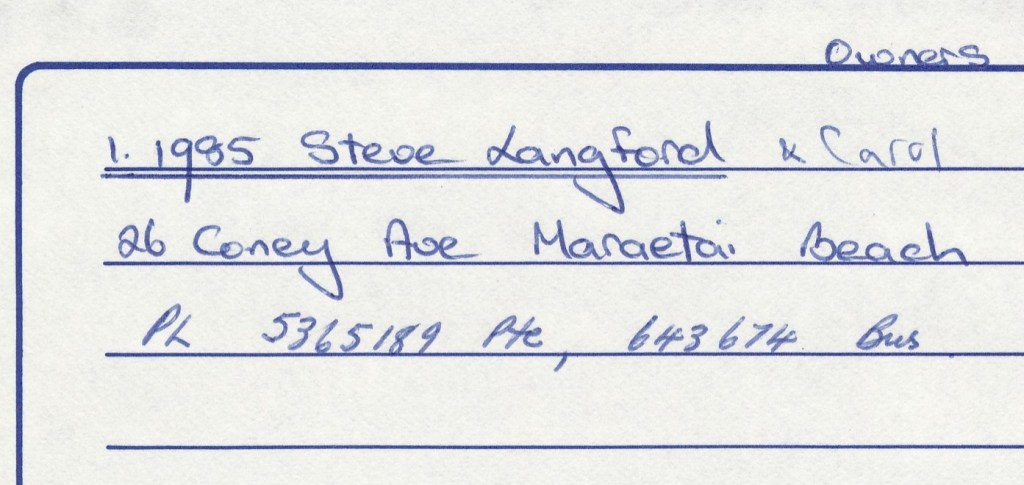 Owners
1. 1985 Steve Langford & Carol
26 Coney Ave Maraetai Beach
Ph 5365189 Pte, 643674 Bus